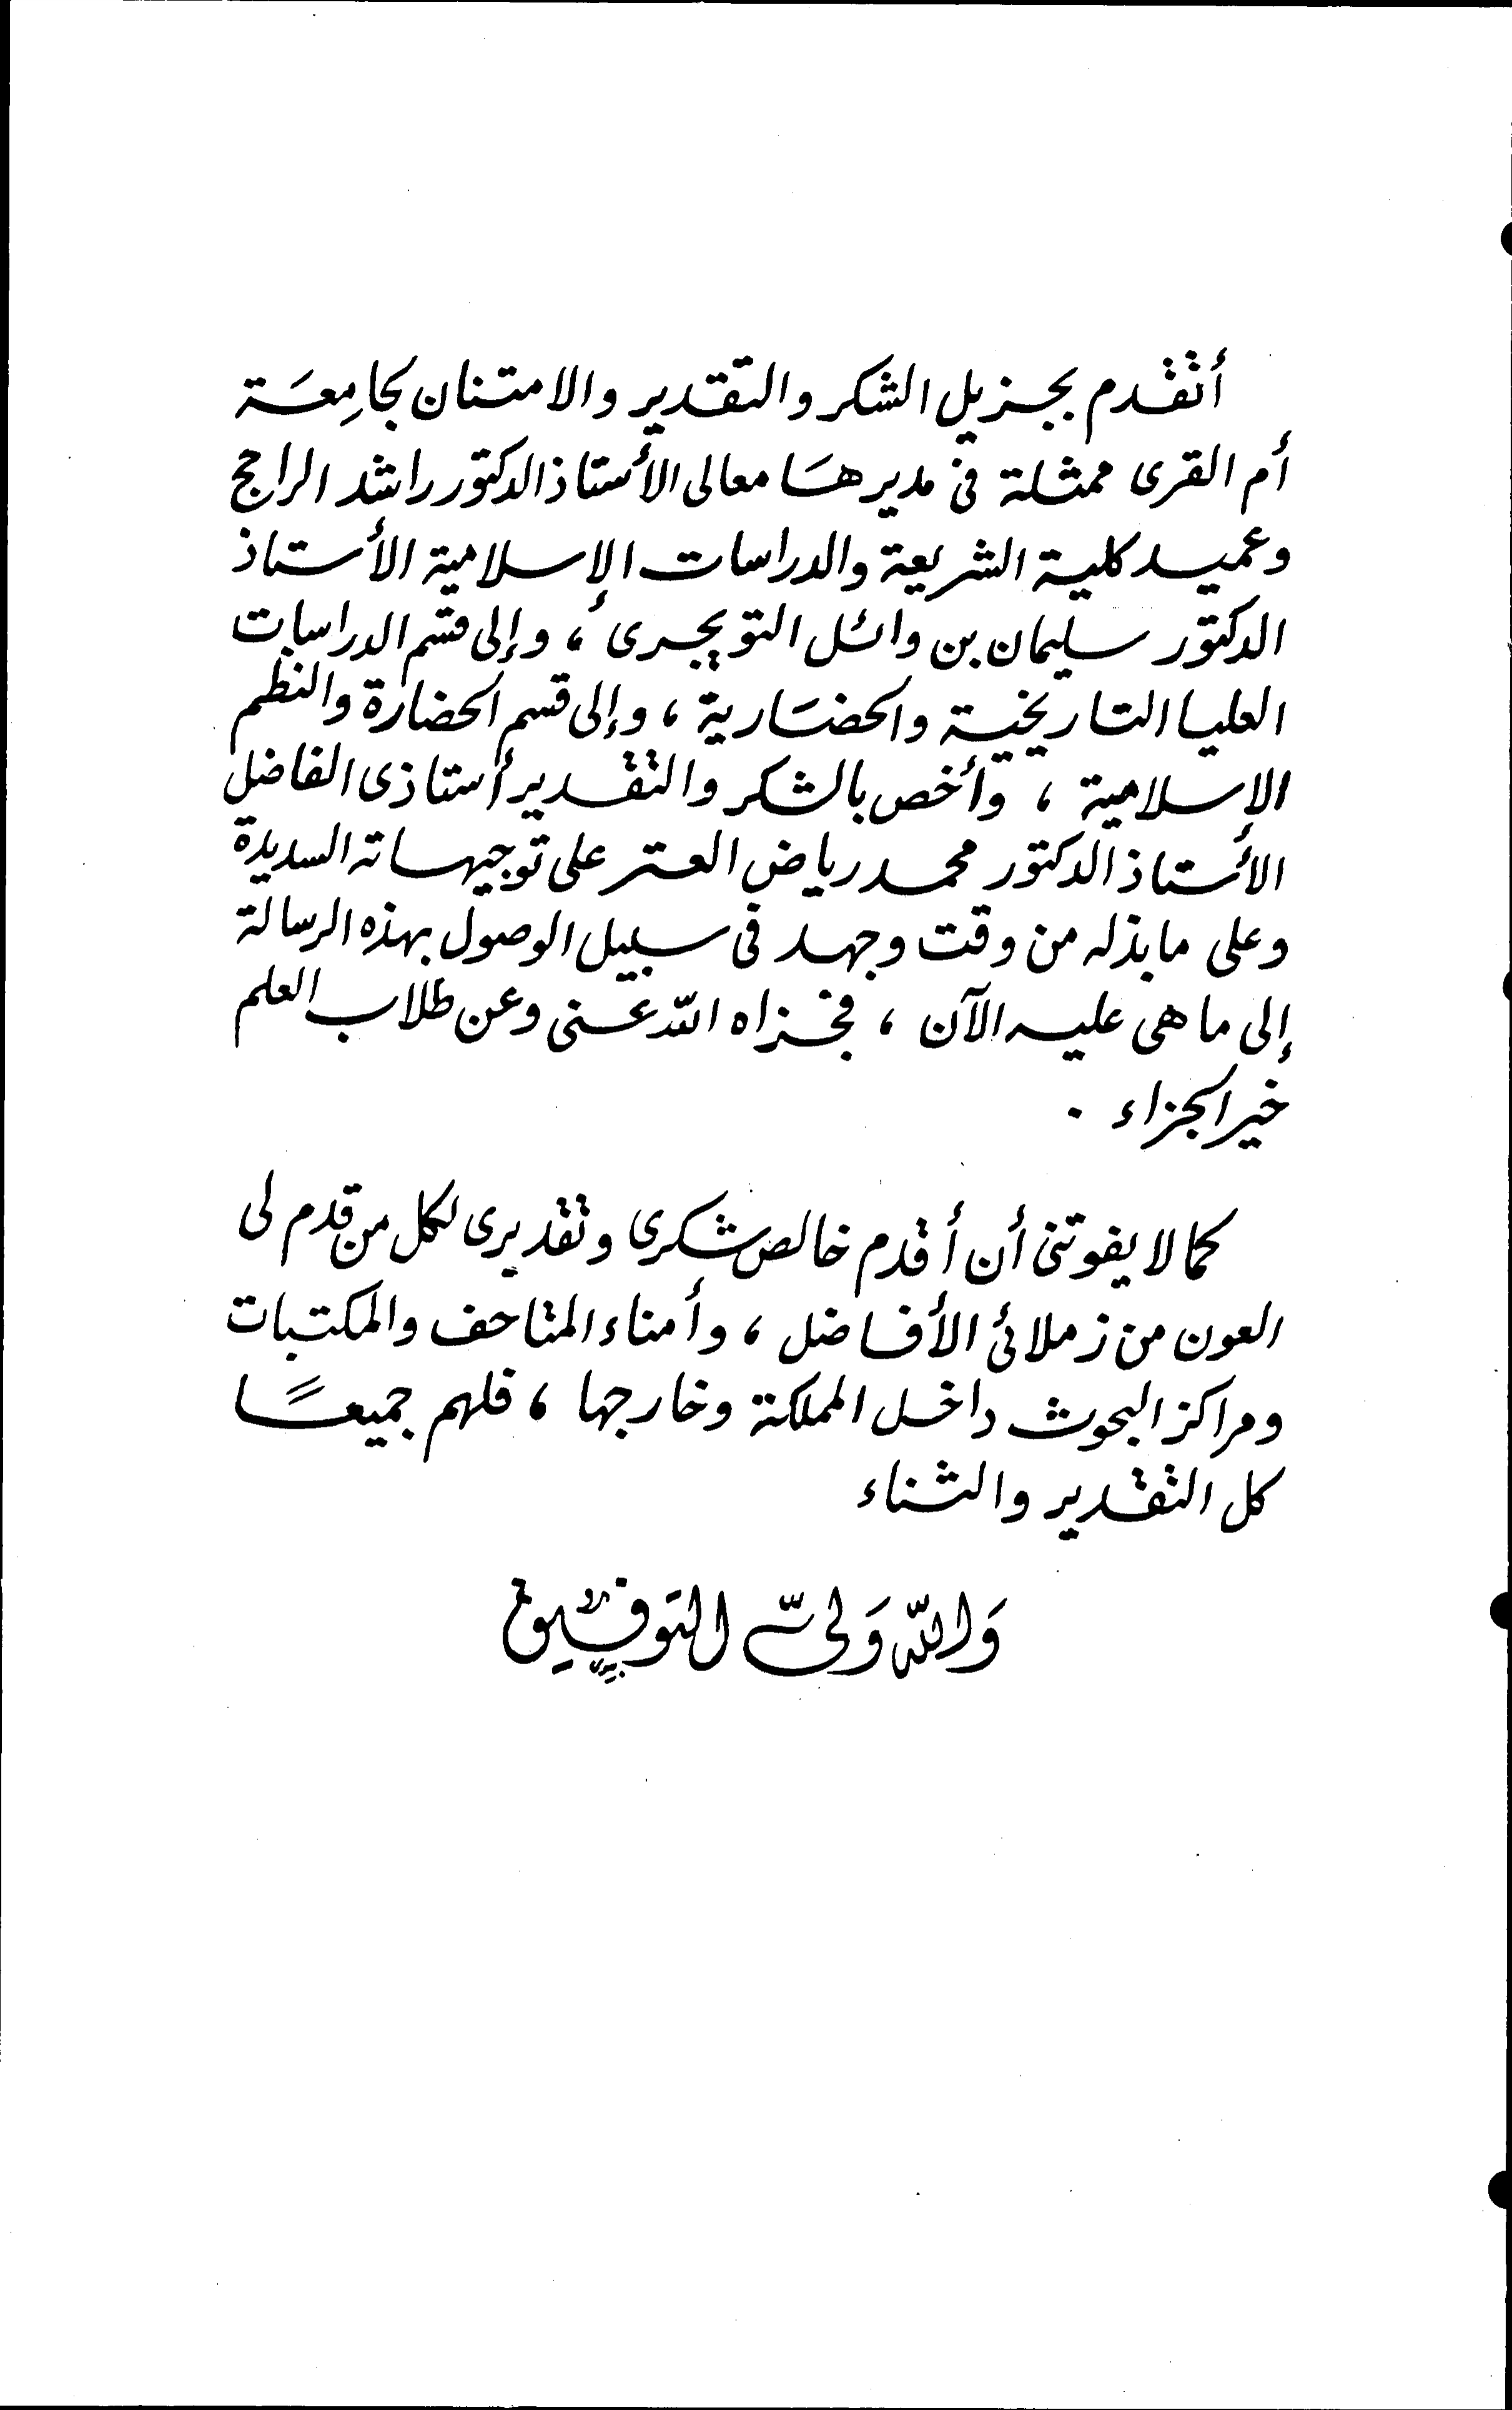 أتقدم بجزيل الشكر والتقدير والامتنان لجامِعَة
أم القرى ممثلة فى مديرهَا معالى الأستاذ الدكتور راشد الراجح
وعميد كلية الشريعة والدراسات الإسلامية الأستاذ
الدكتور سليمان بن وائل التويجرى ، وإلى قسم الدراسات
العليا التاريخية والحضَارية ، وإلى قسم الحضارة والنظم
الإسلامية ، وأخص بالشكر والتقدير أستاذى الفاضل
الأستاذ الدكتور محمد رياض العتر على توجيهاته السديدة
وعلى ما بذله من وقت وجهد فى سبيل الوصول بهذه الرسالة
إلى ما هى عليه الآن ، فجزاه الله عنى وعن طلاب العلم
خير الجزاء .
كما لا يفوتنى أن أقدم خالص شكرى وتقديرى لكل من قدم لى
العون من زملائى الأفاضل ، وأمناء المتاحف والمكتبات
ومراكز البحوث داخل المملكة وخارجها ، فلهم جميعًا
كل التقدير والثناء
وَالله وَلىّ التوفيق